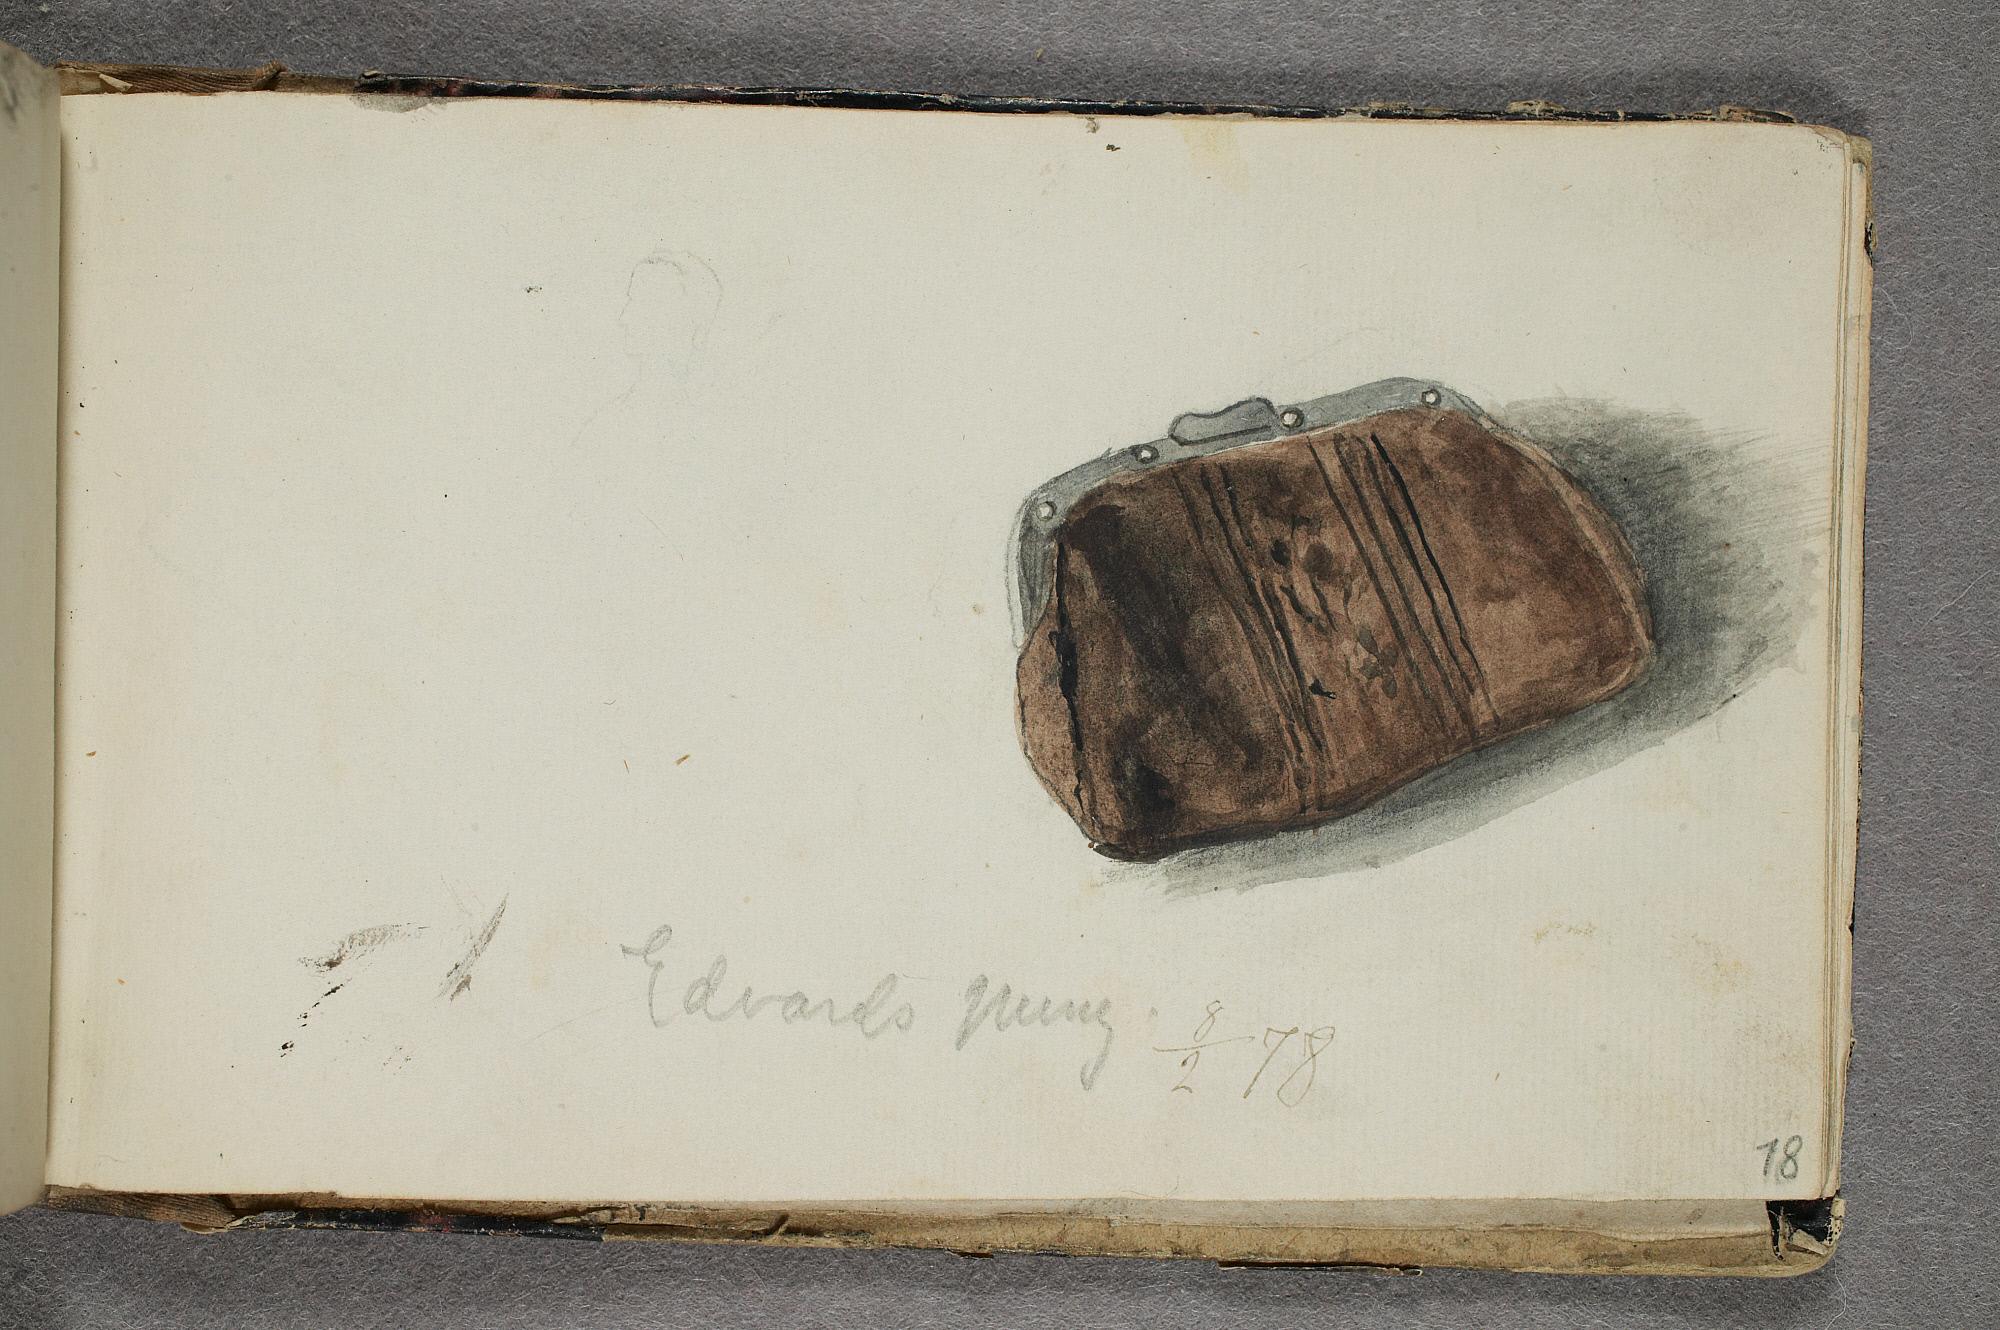 Edvards pung. 8/2 78
18